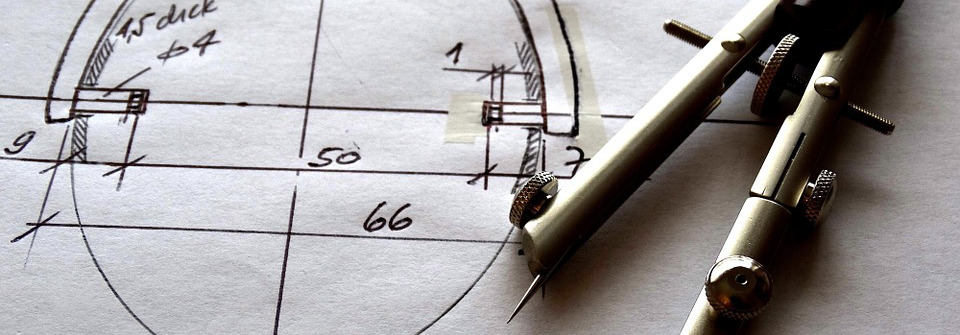 1,5 dick
ϕ4
1
9
50
7
66